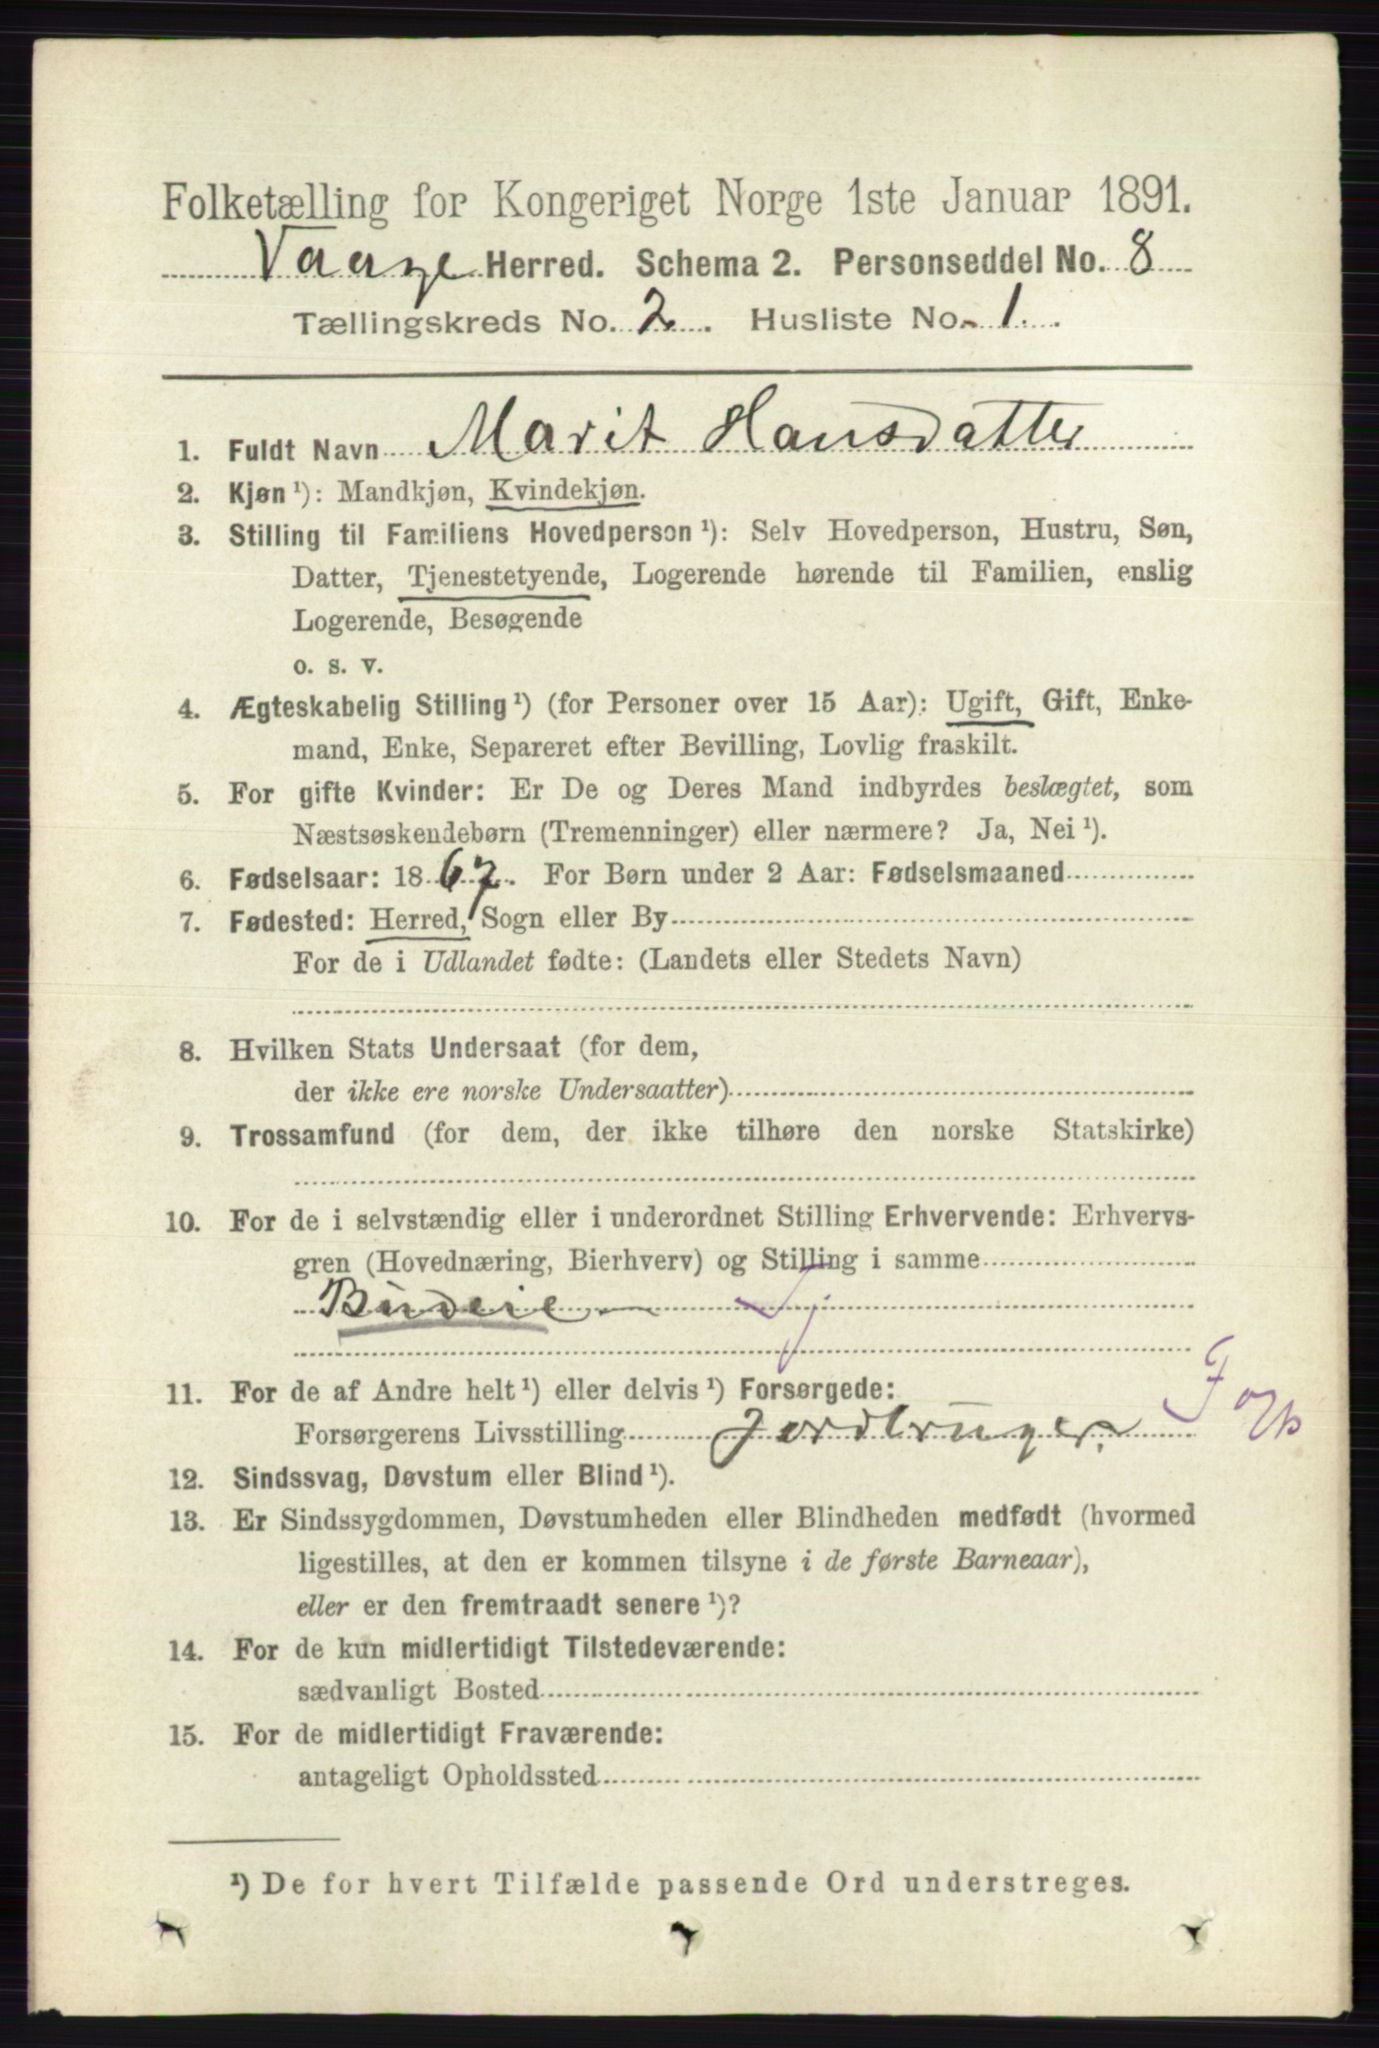 Folketælling for Kongeriget Norge 1ste Januar 1891.
Vaage Herred. Schema 2. Personseddel No. 8
Tællingskreds No. 2. Husliste No. 1.
1. Fuldt Navn Marit Hansdatter
2. Kjøn¹): Mandkjøn, Kvindekjøn.
3. Stilling til Familiens Hovedperson¹): Selv Hovedperson, Hustru, Søn,
Datter, Tjenestetyende, Logerende hørende til Familien, enslig
Logerende, Besøgende
o. s. v.
4. Ægteskabelig Stilling¹) (for Personer over 15 Aar): Ugift, Gift, Enke-
mand, Enke, Separeret efter Bevilling, Lovlig fraskilt.
5. For gifte Kvinder: Er De og Deres Mand indbyrdes beslægtet, som
Næstsøskendebørn (Tremenninger) eller nærmere? Ja, Nei¹).
6. Fødselsaar: 1867. For Børn under 2 Aar: Fødselsmaaned
7. Fødested: Herred, Sogn eller By
For de i Udlandet fødte: (Landets eller Stedets Navn)
8. Hvilken Stats Undersaat (for dem,
der ikke ere norske Undersaatter)
9. Trossamfund (for dem, der ikke tilhøre den norske Statskirke)
10. For de i selvstændig eller i underordnet Stilling Erhvervende: Erhvervs-
gren (Hovednæring, Bierhverv) og Stilling i samme
Budeie
11. For de af Andre helt¹) eller delvis¹) Forsørgede:
Forsørgerens Livsstilling Jordbruger.
12. Sindssvag, Døvstum eller Blind¹).
13. Er Sindssygdommen, Døvstumheden eller Blindheden medfødt (hvormed
ligestilles, at den er kommen tilsyne i de første Barneaar),
eller er den fremtraadt senere¹)?
14. For de kun midlertidigt Tilstedeværende:
sædvanligt Bosted
15. For de midlertidigt Fraværende:
antageligt Opholdssted
¹) De for hvert Tilfælde passende Ord understreges.